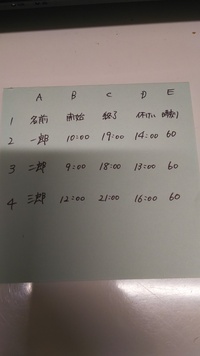 A B C D E
1 名前 開始 終了 休けい 時間
2 一郎 10:00 19:00 14:00 60
3 二郎 9:00 18:00 13:00 60
4 三郎 12:00 21:00 16:00 60